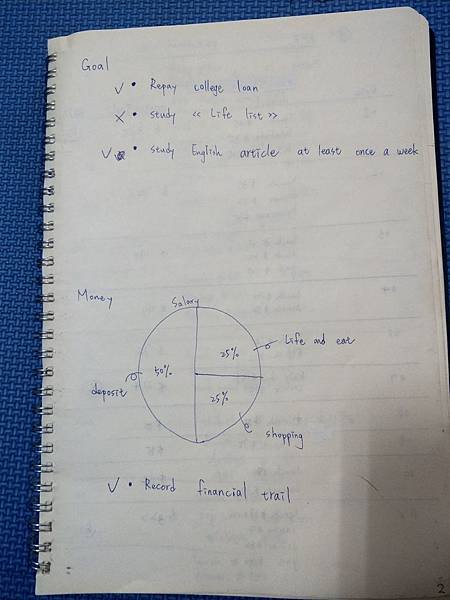 Goal
✓ • Repay college loan
✗ • study << Life list >>
✓ • study English article at least once a week
Money
Salary
25%
Life and eat
50%
deposit
25%
shopping
✓ • Record financial trail
2